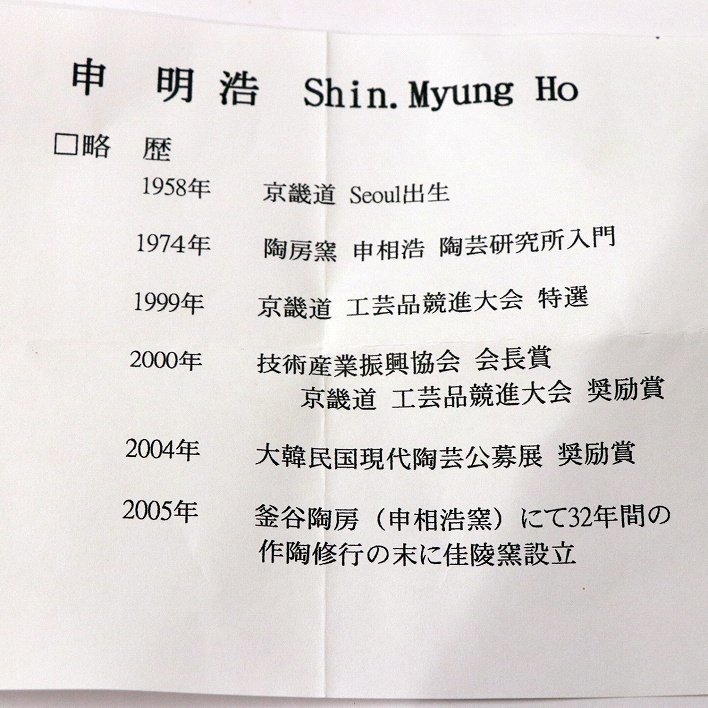 申 明 浩 Shin. Myung Ho
□略 歴
1958年 京畿道 Seoul出生
1974年 陶房窯 申相浩 陶芸研究所入門
1999年 京畿道 工芸品競進大会 特選
2000年 技術産業振興協会 会長賞
京畿道 工芸品競進大会 奨励賞
2004年 大韓民国現代陶芸公募展 奨励賞
2005年 釜谷陶房（申相浩窯）にて32年間の
作陶修行の末に佳陵窯設立